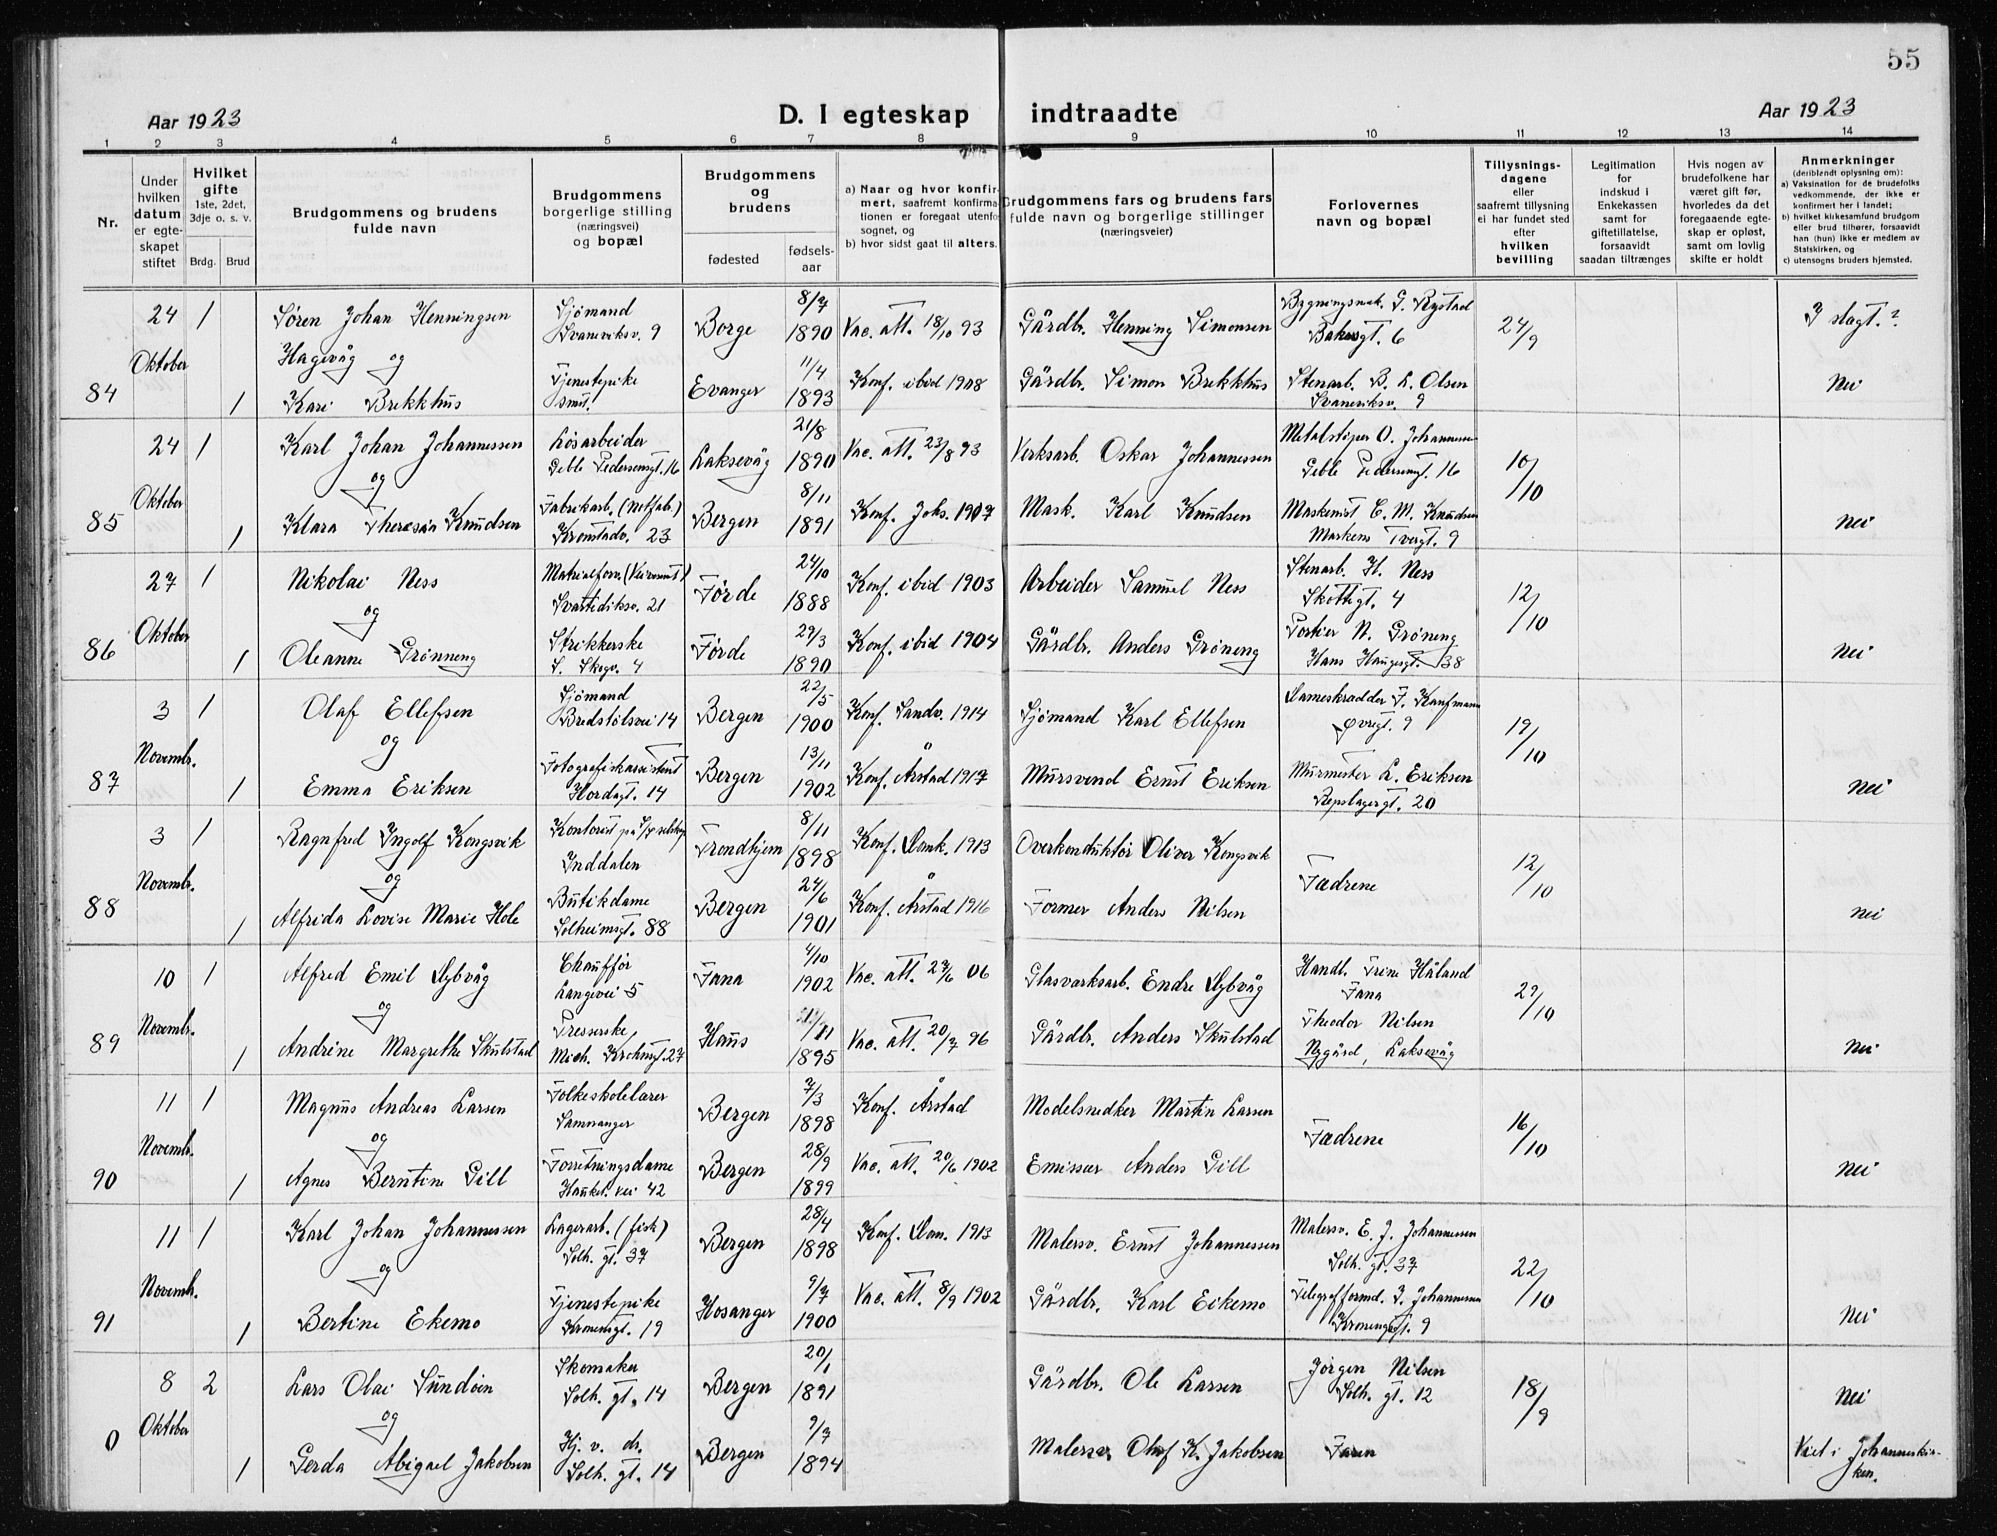 55
Aar 1923
D. I egteskap indtraadte
Aar 1923
1 2 3 4 5 6 7 8 9 10 11 12 13 14
Nr.
Under hvilken datum er egteskapet stiftet
Hvilket gifte 1ste, 2det, 3dje o. s. v.
Brdg. Brud
Brudgommens og brudens fulde navn
Brudgommens borgerlige stilling (næringsvei) og bopæl
Brudgommens og brudens
fødested fødsels-aar
a) Naar og hvor konfirmert, saafremt konfirmationen er foregaat utenfor sognet, og
b) hvor sidst gaat til alters.
Brudgommens fars og brudens fars fulde navn og borgerlige stillinger (næringsveier)
Forlovernes navn og bopæl
Tillysningsdagene eller saafremt tillysning ei har fundet sted efter hvilken bevilling
Legitimation for indskud i Enkekassen samt for giftetillatelse, forsaavidt saadan tiltrænges
Hvis nogen av brudefolkene har været gift før, hvorledes da det foregaaende egteskap er opløst, samt om lovlig skifte er holdt
Anmerkninger (deriblandt oplysning om):
a) Vaksination for de brudefolks vedkommende, der ikke er konfirmert her i landet;
b) hvilket kirkesamfund brudgom eller brud tilhører, forsaavidt han (hun) ikke er medlem av Statskirken, og
c) utensogns bruders hjemsted.
84 24 Oktober 1 Søren Johan Henningsen Hagevåg og Sjømand Svaneviksv. 9 Borge 8/7 1890 Vac. att. 18/10 93 Gårdbr. Henning Simonsen Bygningsnek. G. Rystad Bakergt. 6 24/9 I slagt.?
1 Kari Brekkhus Tjenestepike smst. Evanger 11/4 1893 Konf. ibid 1908 Gårdbr. Simon Brekkhus Stenarb. B. L. Olsen Svaneviksv. 9 Nei
85 24 Oktober 1 Karl Johan Johannessen og Løsarbeider Geble Pedersensgt. 16 Laksevåg 21/8 1890 Vac. att. 23/8 93 Verksarb. Oskar Johannessen Metalstøper O. Johannessen Geble Pedersensgt. 16 10/10
1 Klara Theresia Knudsen Fabrikarb. (Notfab.) Kronstadv. 23 Bergen 8/11 1891 Konf. Johs. 1907 Mask. Karl Knudsen Maskenist E. M. Knudsen Markens Tvergt. 9 Nei
86 27 Oktober 1 Nikolai Ness og Matrialforv. (Veivesnet) Svartediksv. 21 Førde 24/10 1888 Konf. ibid 1903 Arbeider Samuel Ness Stenarb. H. Ness Skottegt. 4 12/10
1 Oleanne Grønneng Strikkerske S. Skogv. 4 Førde 29/3 1890 Konf. ibid 1904 Gårdbr. Anders Grøneng Portier N. Grøneng Hans Haugesgt. 38 Nei
87 3 Novembr. 1 Olaf Ellefsen og Sjømand Bredstølsvei 14 Bergen 22/5 1900 Konf. Sandv. 1914 Sjømand Karl Ellefsen Dameskradder F. Kaufmann Øvregt. 9 19/10
1 Emma Eriksen Fotografiskassistent Hordagt. 14 Bergen 13/11 1902 Konf. Årstad 1917 Mursvend Ernst Eriksen Murmester L. Eriksen Repslagergt. 20 Nei
88 3 Novembr. 1 Ragnfred Ingolf Kongsvik og Kontorist på Inddalen Trondhjem 8/11 1898 Konf. Domk. 1913 Overkonduktør Oliver Kongsvik Fædrene 12/10
1 Alfrida Lovise Marie Hole Butikdame Solheimsgt. 88 Bergen 24/6 1901 Konf. Årstad 1916 Former Anders Nilsen Nei
89 10 Novembr. 1 Alfred Emil Dybvåg og Chauffør Langevei 5 Fana 4/10 1902 Vac. att. 27/6 06 Glasværksarb. Endre Dybvåg Handl. Trine Håland Fana 22/10
1 Andrine Margrethe Skulstad Presserske Mich. Krohnsgt. 27 Haus 1895 Vac. att. 20/7 96 Gårdbr. Anders Skulstad Theodor Nilsen Nygård, Laksevåg Nei
90 11 Novembr. 1 Magnus Andreas Larsen og Folkeskolelærer Samnanger Bergen 7/3 1898 Konf. Årstad Modelsnedker Martin Larsen Fædrene 16/10
1 Agnes Berntine Gill Forretningsdame Hauket. vei 42 Bergen 28/9 1899 Vac. att. 20/6 1902 Emissær Anders Gill Nei
91 11 Novemb. 1 Karl Johan Johannessen og Lagerarb. (fisk) Solh. gt. 37 Bergen 28/4 1898 Konf. Dom. 1913 Malersv. Ernst Johannessen Malersv. E. J. Johannessen Solh. gt. 37 22/10
1 Bertine Ekemo Tjenestepike Kronengt. 19 Hosanger 9/7 1900 Vac. att. 8/9 1902 Gårdbr. Karl Eikemo Telegrafformd. J. Johannessen Kronengt. 9 Nei
0 8 Oktober 2 Lars Olai Sundøen og Skomaker Solh. gt. 14 Bergen 20/1 1891 Gårdbr. Ole Larsen Jørgen Nilsen Solh. gt. 12 18/9 Nei
1 Gerda Abigael Jakobsen Hj. v. do. Solh. gt. 14 Bergen 9/7 1894 Malersv. Olaf K. Jakobsen Faren Viet i Johanneskirken.